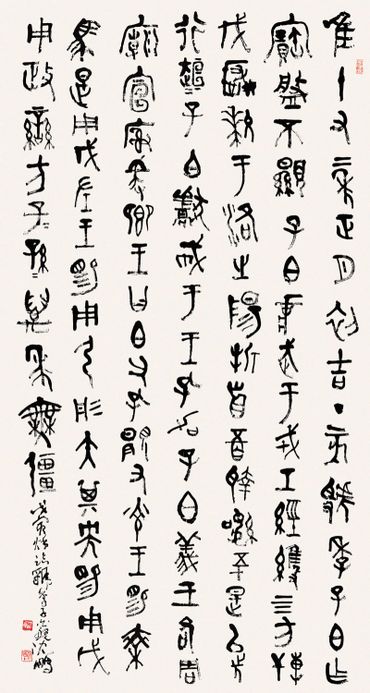 唯十又二年正月初吉丁亥虢季子白乍
寶盤不顯子白壯武于戎工經維四方搏
伐玁狁于洛之陽折首五百執訊五十是以先
行桓子白獻馘于王孔加子白義王各周
廟宣榭爰鄉王曰白父孔顯又光王賜乘
馬是用左王賜用弓彤矢其央賜用戉
用政蠻方子孫萬年無疆
沈鵬